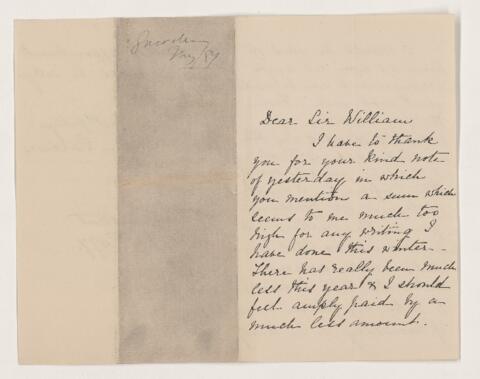 May /89
Dear Sir William
I have to thank
you for your kind note
of yesterday in which
you mention a sum which
seems to me much too
high for any writing I
have done this winter -
There has really been much
less this year & I should
feel amply paid by a
much less amount.